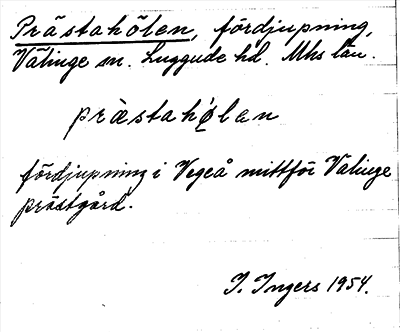 Prästahölen, fördjupning,
Välinge sn. Luggude hd. Mhs län.
prästahölan
fördjupning i Vegeå mittför Välinge
prästgård.
I. Ingers 1954.